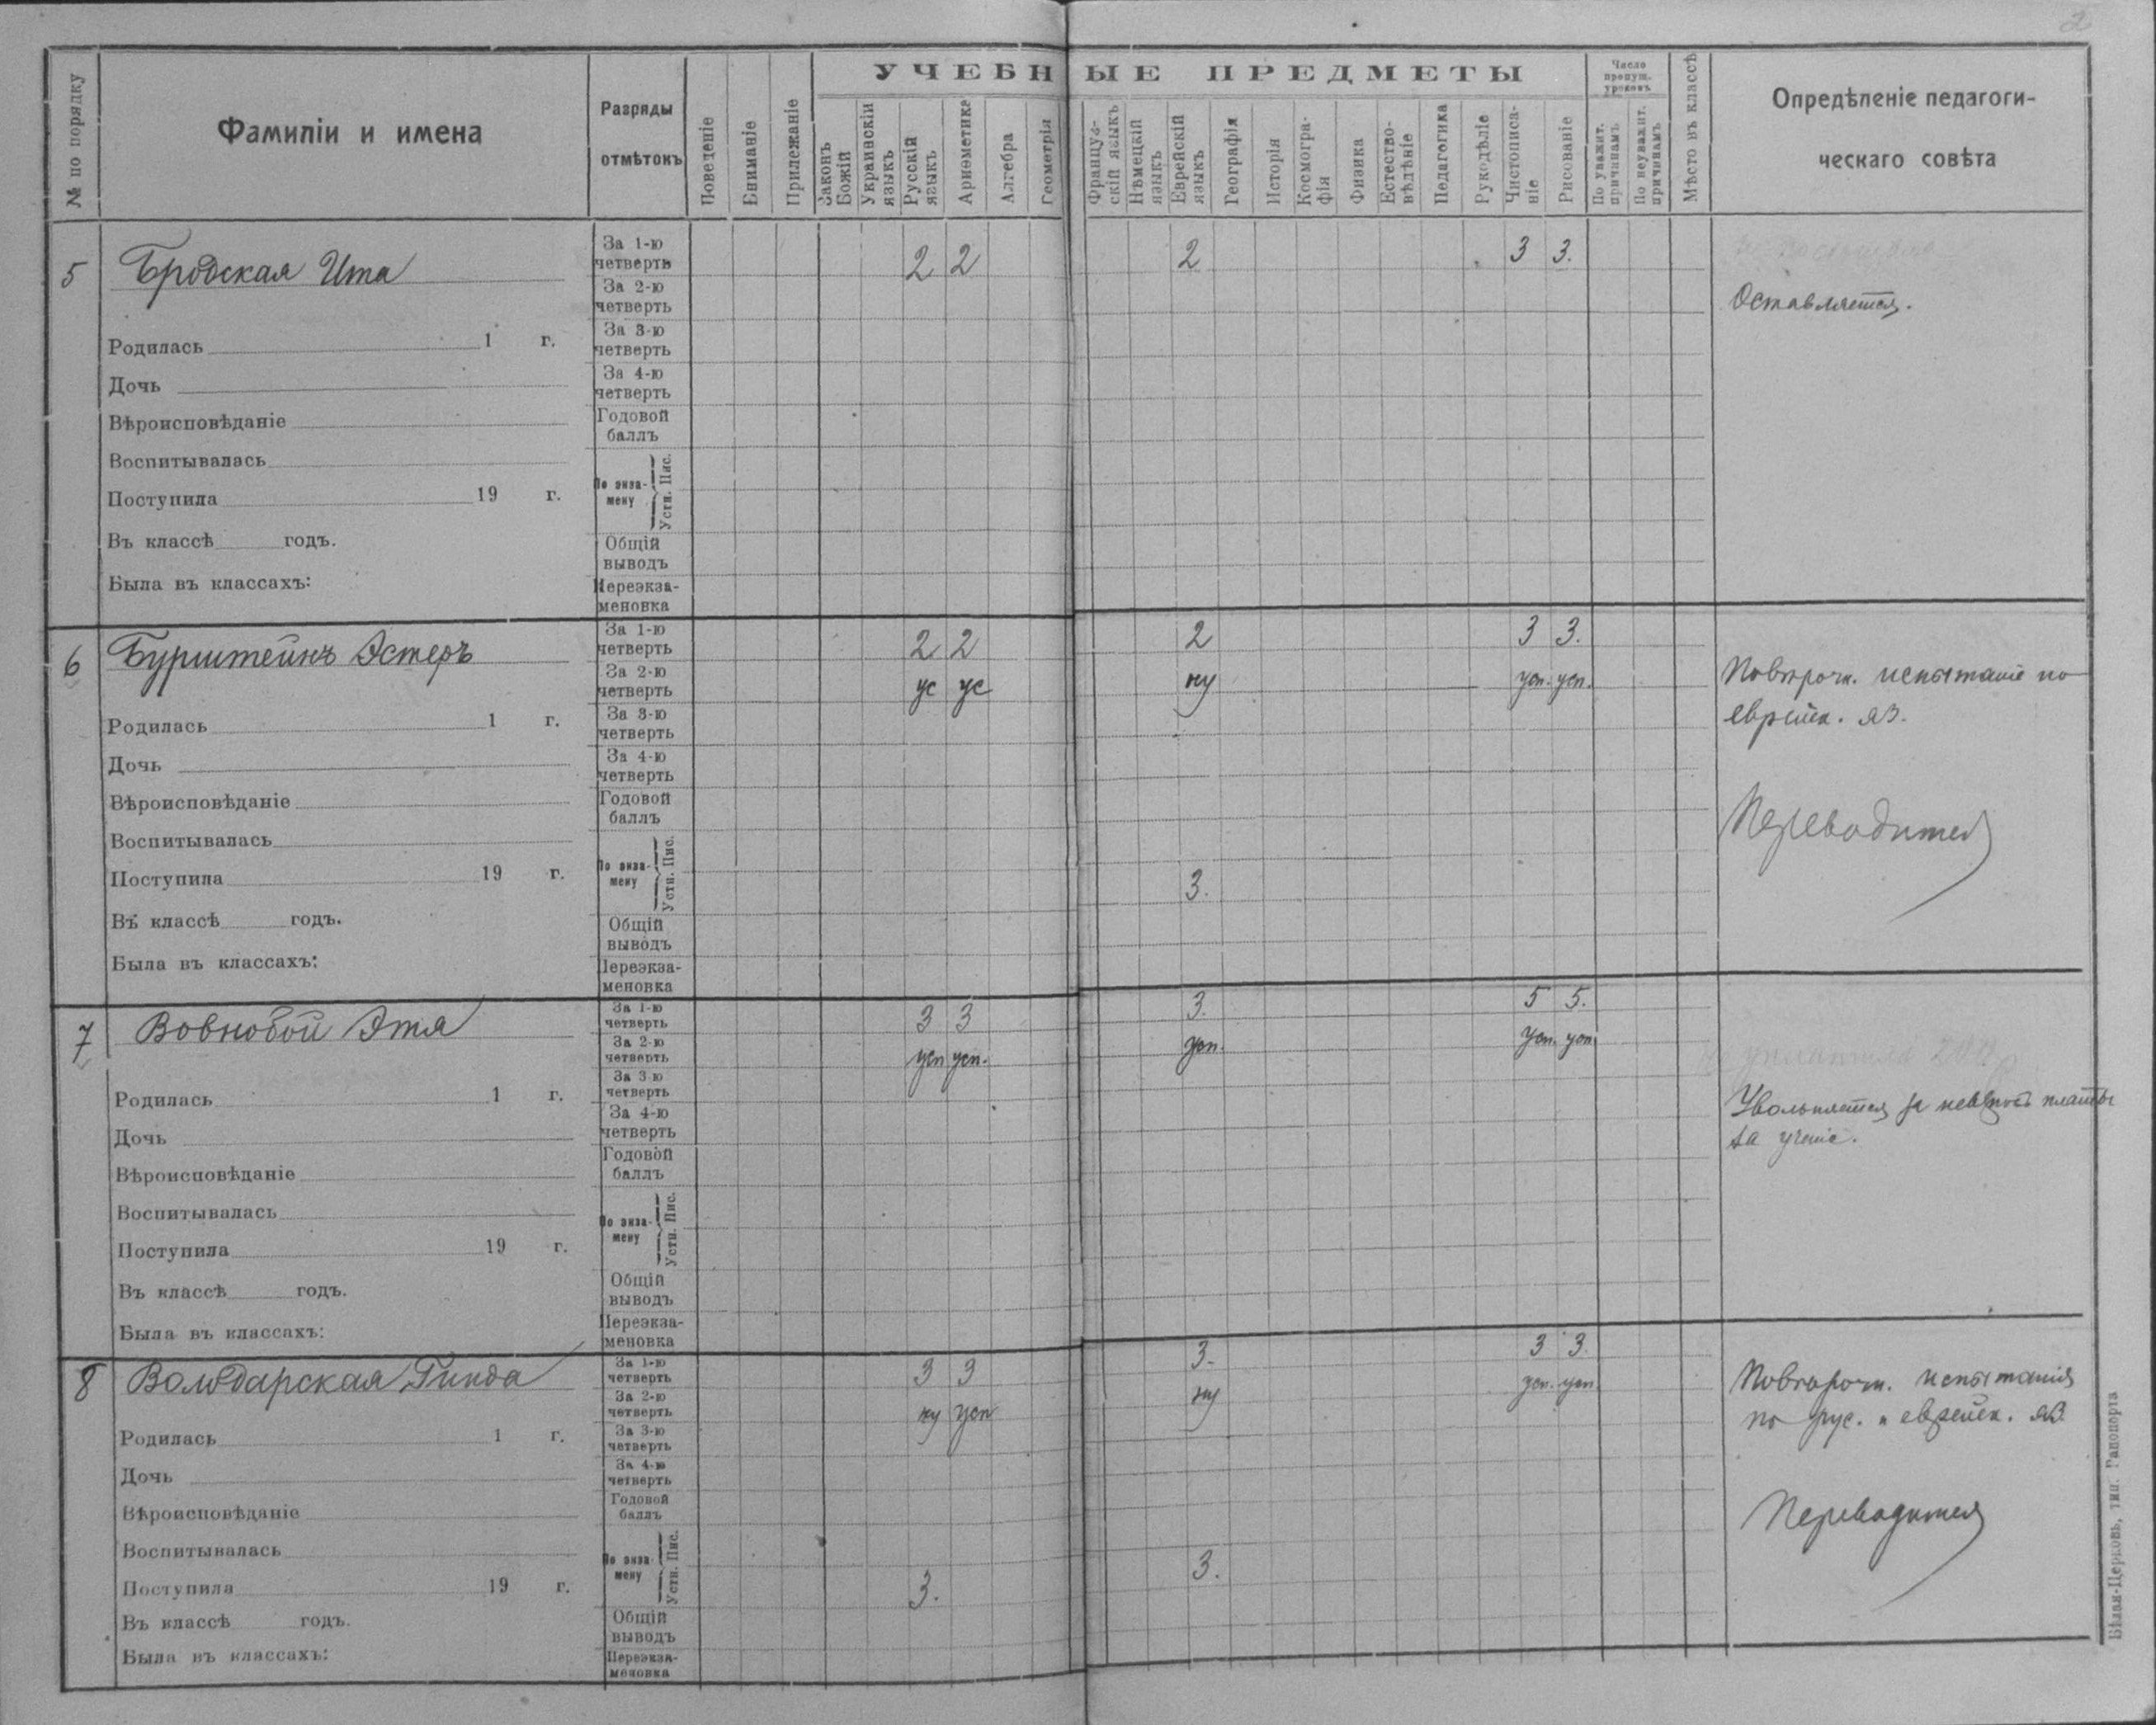 2
УЧЕБНЫЕ ПРЕДМЕТЫ
№ по порядку
Фамиліи и имена
Разряды
отмѣтокъ
Поведеніе
Вниманіе
Прилежаніе
Законъ
Божій
Украинскій
языкъ
Русскій
языкъ
Ариѳметика
Алгебра
Геометрія
Француз-
скій языкъ
Нѣмецкій
языкъ
Еврейскій
языкъ
Географія
Исторія
Космогра-
фія
Физика
Естество-
вѣдѣніе
Педагогика
Рукодѣліе
Чистописа-
ніе
Рисованіе
Число
пропущ.
уроковъ
По уважит.
причинамъ
По неуважит.
причинамъ
Мѣсто въ классѣ
Опредѣленіе педагоги-
ческаго совѣта
5 Бродская Ита
За 1-ю
четверть 2 2 2 3 3.
За 2-ю
четверть
Оставляется.
За 3-ю
четверть
Родилась 1 г.
За 4-ю
четверть
Дочь
Годовой
баллъ
Вѣроисповѣданіе
Воспитывалась
По экза-
мену
Пис.
Устн.
Поступила 19 г.
Въ классѣ годъ.
Общій
выводъ
Была въ классахъ:
Переэкза-
меновка
6 Бурштейнъ Эстеръ
За 1-ю
четверть 2 2 2 3 3.
За 2-ю
четверть ус ус ну усп. усп.
Повтрочн. испытаніе по
еврейск. яз.
За 3-ю
четверть
Родилась 1 г.
За 4-ю
четверть
Дочь
Годовой
баллъ
Вѣроисповѣданіе
Переводится
Воспитывалась
По экза-
мену
Пис.
Устн. 3.
Поступила 19 г.
Въ классѣ годъ.
Общій
выводъ
Была въ классахъ:
Переэкза-
меновка
7 Вовновой Этя
За 1-ю
четверть 3 3 3. 5 5.
За 2-ю
четверть усп усп. усп. усп. усп.
За 3-ю
четверть
Увольняется за невзносъ платы
за ученіе.
Родилась 1 г.
За 4-ю
четверть
Дочь
Годовой
баллъ
Вѣроисповѣданіе
Воспитывалась
По экза-
мену
Пис.
Устн.
Поступила 19 г.
Въ классѣ годъ.
Общій
выводъ
Была въ классахъ:
Переэкза-
меновка
8 Володарская Гинда
За 1-ю
четверть 3 3 3. 3 3.
За 2-ю
четверть ну усп ну усп. усп.
Повторочн. испытанія
по рус. и еврейск. яз.
За 3-ю
четверть
Родилась 1 г.
За 4-ю
четверть
Дочь
Годовой
баллъ
Вѣроисповѣданіе
Переводится
Воспитывалась
По экза-
мену
Пис.
Устн. 3. 3.
Поступила 19 г.
Въ классѣ годъ.
Общій
выводъ
Была въ классахъ:
Переэкза-
меновка
Бѣлая-Церковь, тип. Рапопорта